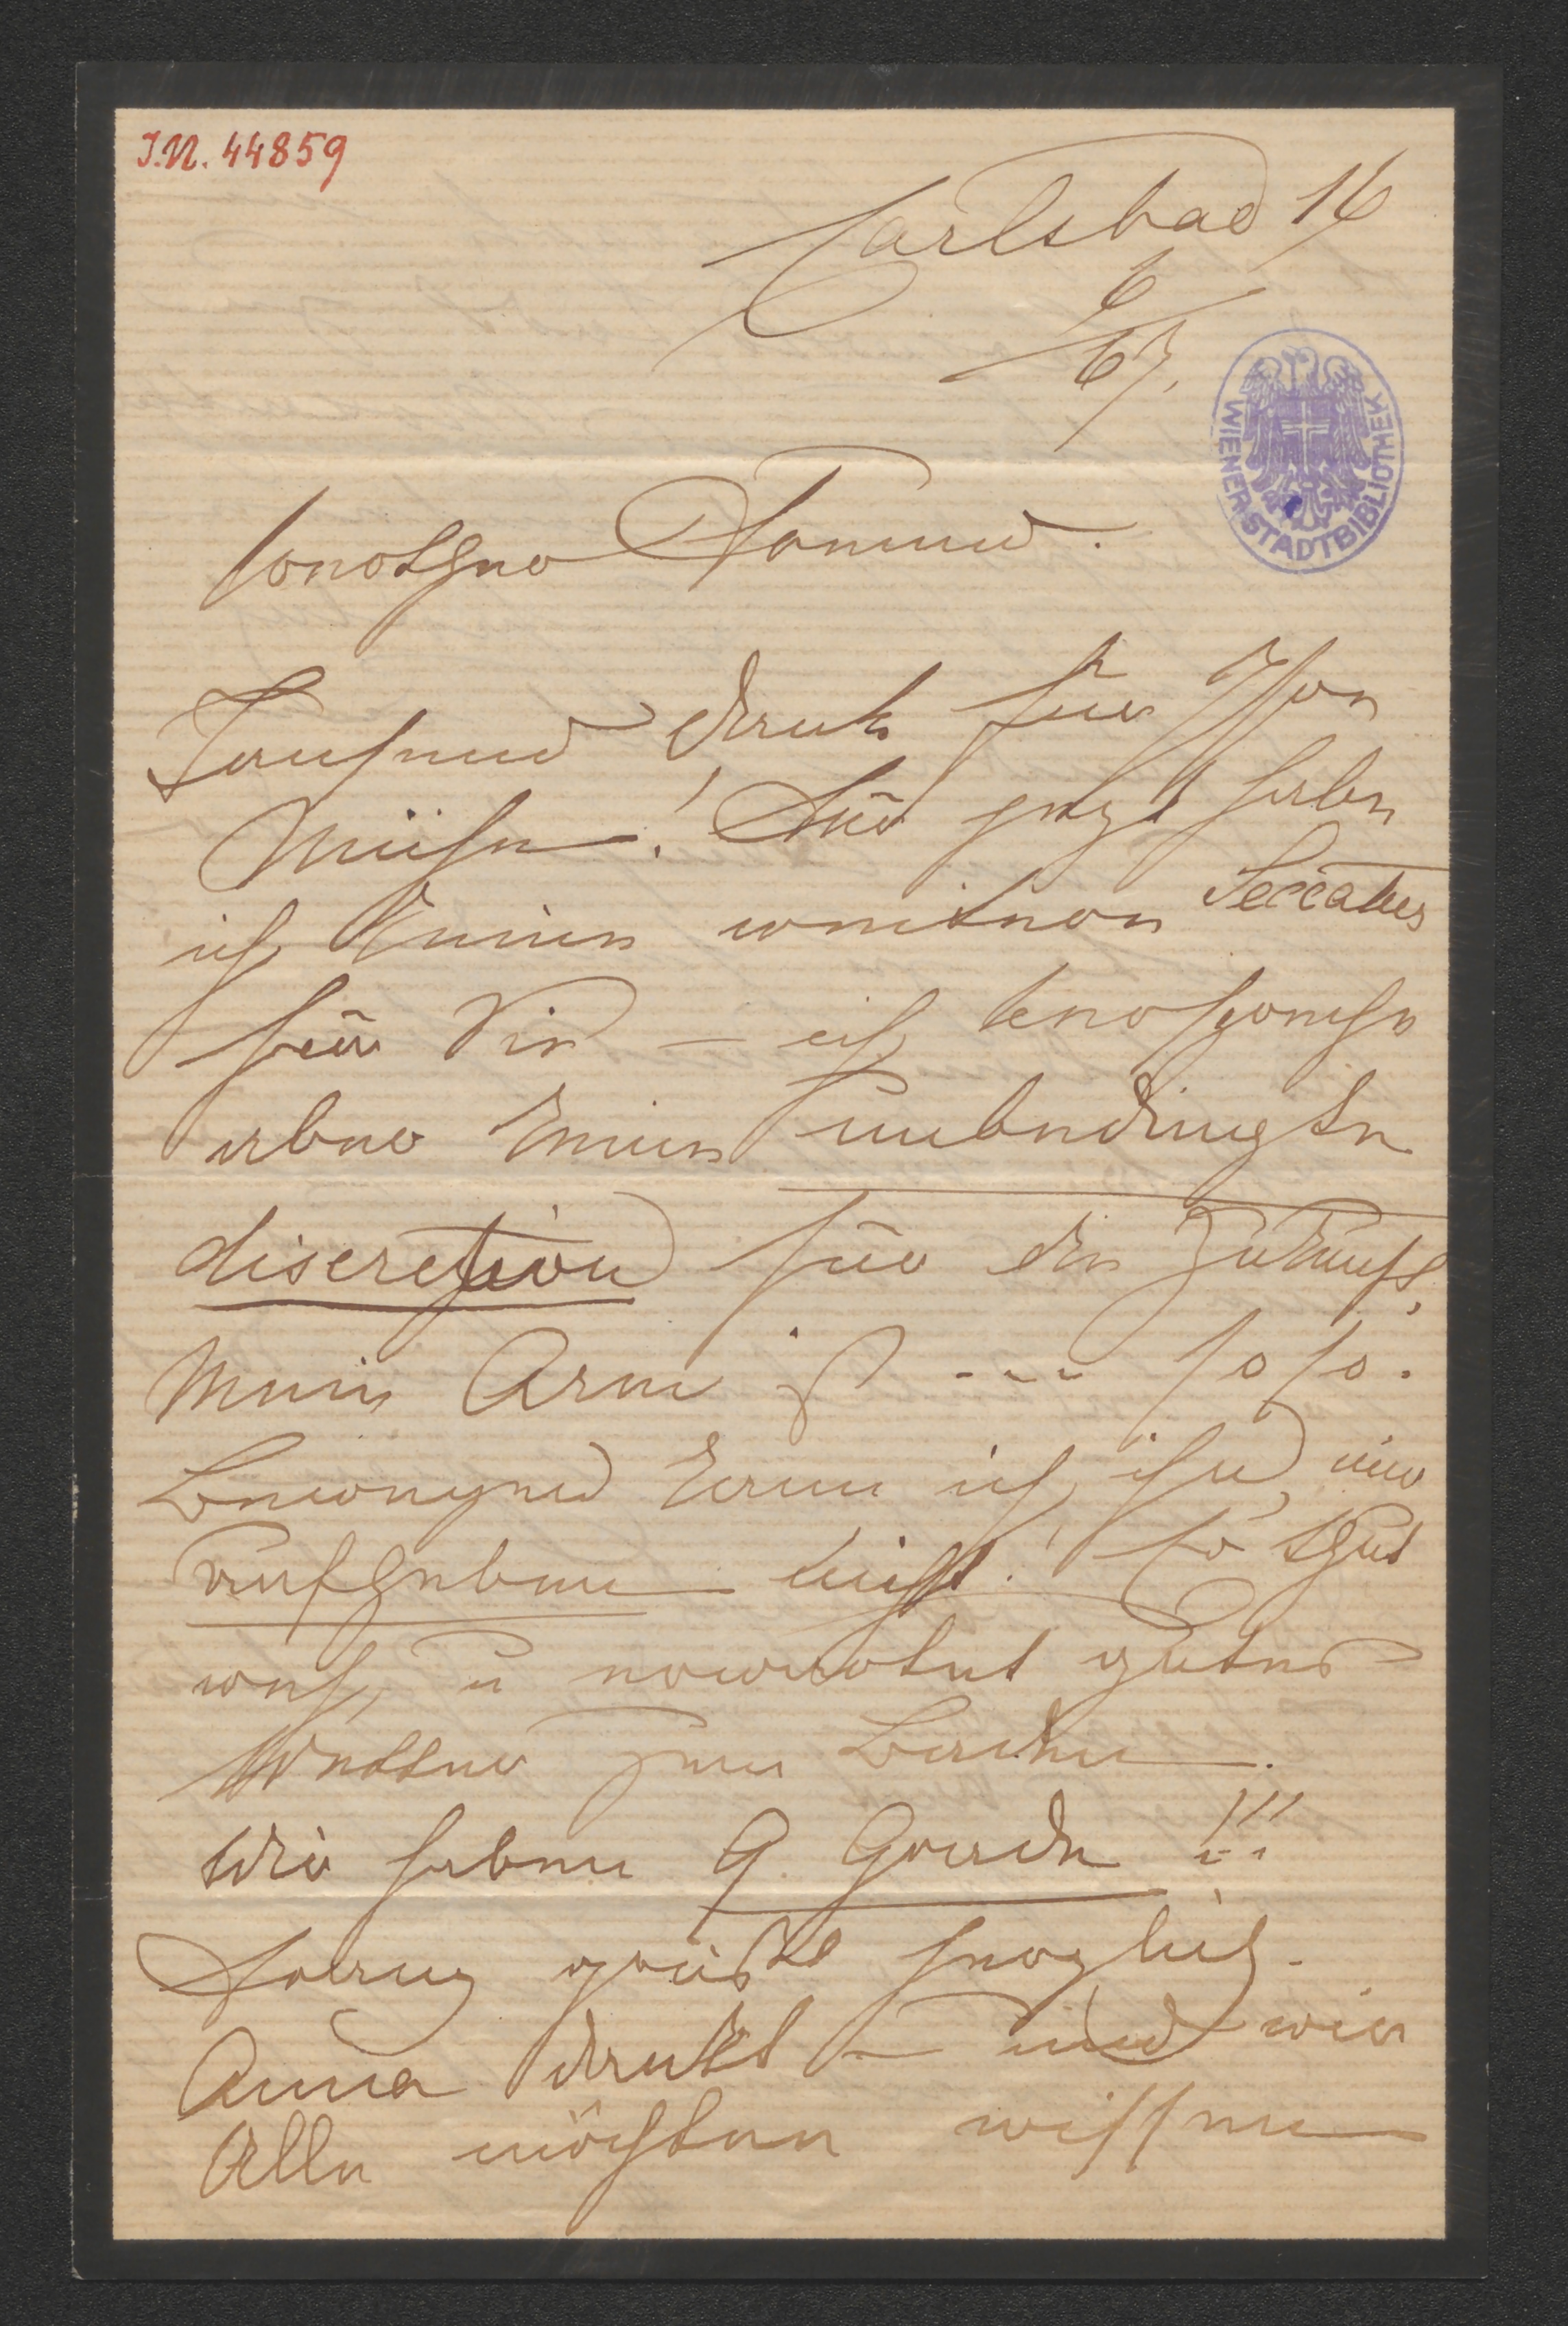 I.N. 44859
Carlsbad 16/
6/
67.
WIENER STADTBIBLIOTHEK
Werther Freund.
Tausend Dank für Ihre
Mühe! Für jetzt habe
ich keine weiteren Seccaturen
für Sie – ich verspreche
aber keine unbedingte
discretion für die Zukunft,
Mein Arm ist --- so so.
Bewegend kann ich ihn, nur
aufheben nicht! Er thut
weh, u erwartet gutes
Wetter zum Baden.
Wir haben 9 Grade !!!
grüßt herzlich.
Anna dankt – und wir
Alle möchten wissen